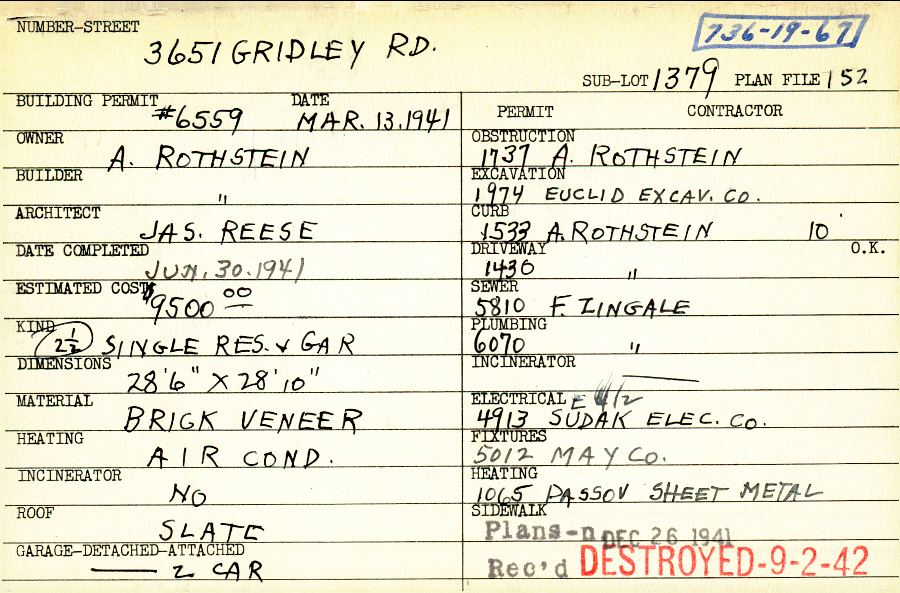 NUMBER-STREET
3651 GRIDLEY RD.
736-19-67
SUB-LOT 1379 PLAN FILE 152
BUILDING PERMIT DATE
#6559 MAR. 13. 1941
OWNER
A. ROTHSTEIN
BUILDER
"
ARCHITECT
JAS. REESE
DATE COMPLETED
JUN. 30. 1941
ESTIMATED COST
$9500 00
KIND
2 1/2 SINGLE RES. & GAR
DIMENSIONS
28'6" X 28'10"
MATERIAL
BRICK VENEER
HEATING
AIR COND.
INCINERATOR
NO
ROOF
SLATE
GARAGE-DETACHED-ATTACHED
2 CAR
PERMIT CONTRACTOR
OBSTRUCTION
1737 A. ROTHSTEIN
EXCAVATION
1974 EUCLID EXCAV. CO.
CURB
1533 A. ROTHSTEIN 10'
DRIVEWAY O.K.
1430 "
SEWER
5810 F. ZINGALE
PLUMBING
6070 "
INCINERATOR
ELECTRICAL E
4913 SUDAK ELEC. CO.
FIXTURES
5012 MAY CO.
HEATING
1065 PASSOV SHEET METAL
SIDEWALK
Plans-n DEC 26 1941
Rec'd DESTROYED-9-2-42